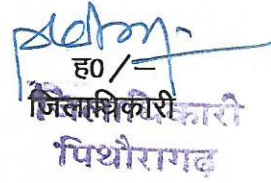 ह0/-
जिलाधिकारी
जिलाधिकारी
पिथौरागढ़